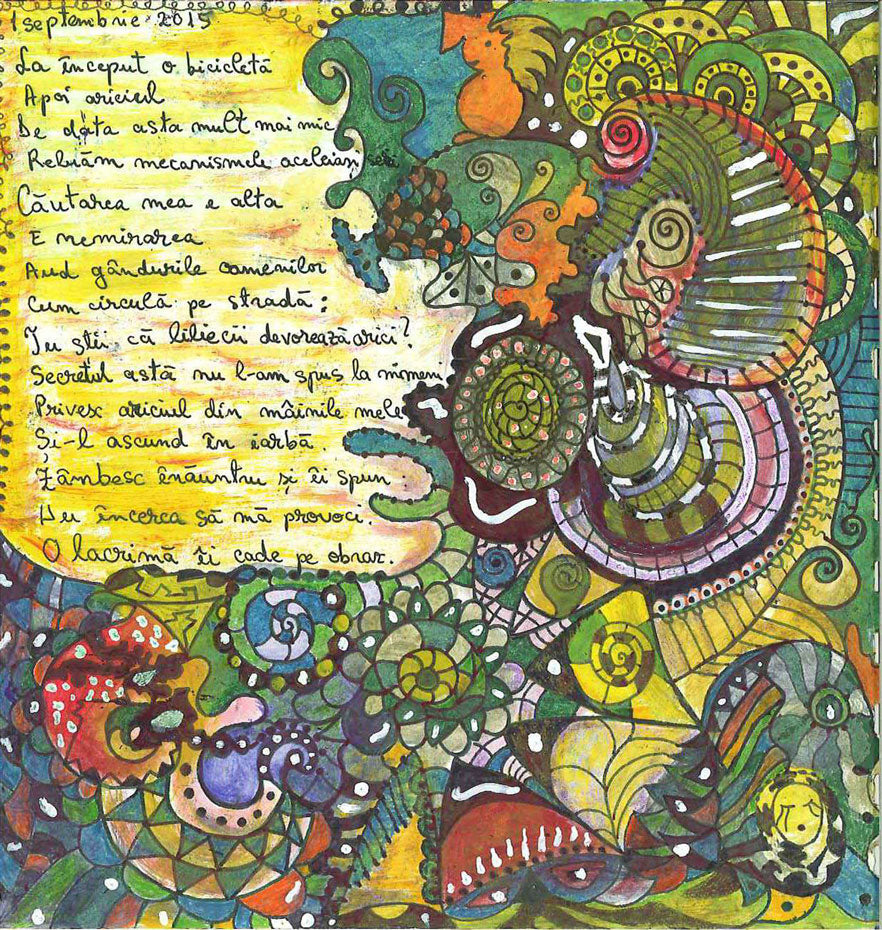 1 septembrie 2015
La început o bicicletă
Apoi ariciul
De data asta mult mai mic
Rebiăm mecanismele aceleiași
Căutarea mea e alta
E nemirarea
Aud gândurile oamenilor
Cum circulă pe stradă:
Tu știi că liliecii devorează arici?
Secretul astă nu l-am spus la nimeni
Privesc ariciul din mâinile mele
Și-l ascund în iarbă.
Zâmbesc înăuntru și îi spun:
Nu încerca să mă provoci.
O lacrimă îi cade pe obraz.